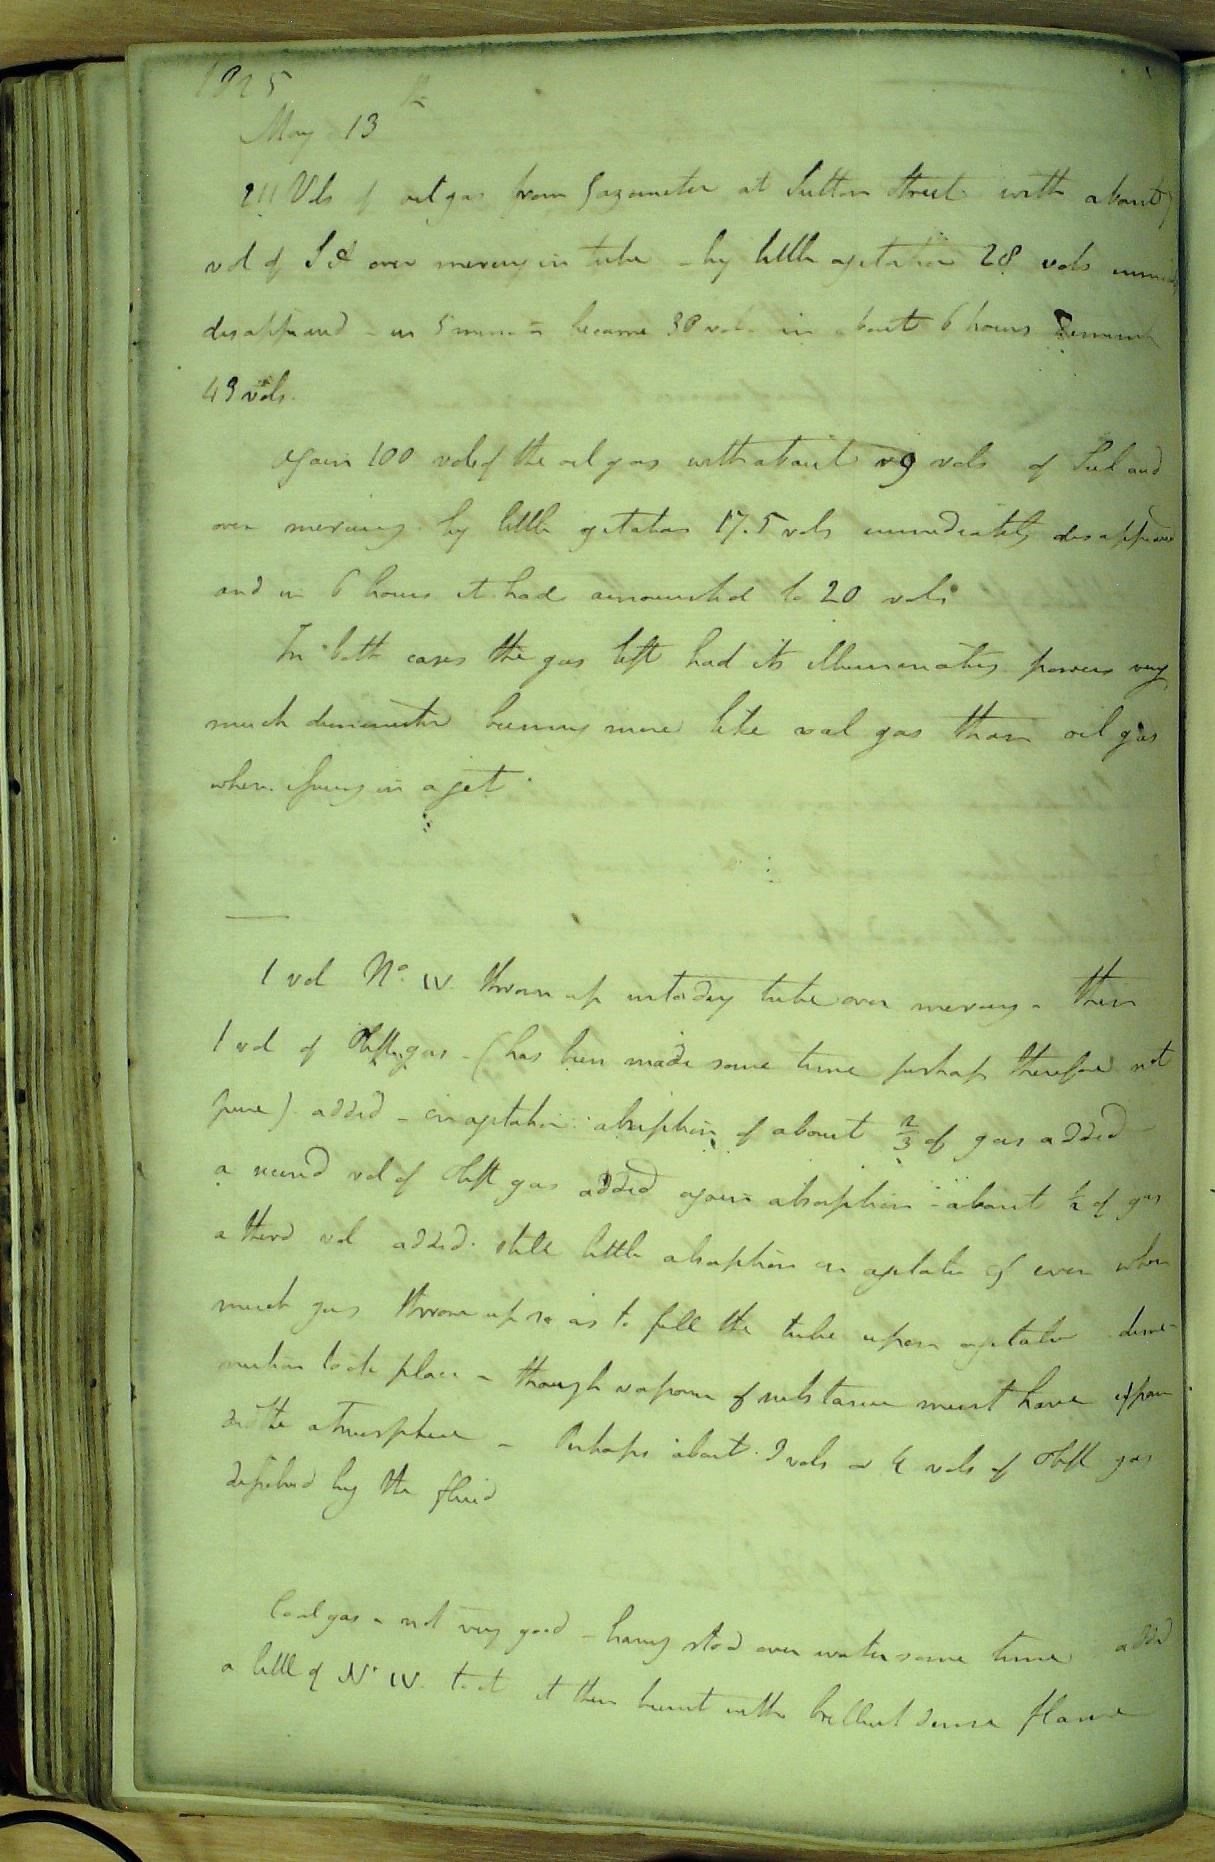 1825
May 13th
211 Vols of oil gas from Gazometer at Sutton Street with about
vol of S A over mercury in tube - by little agitation 28 vols
disappeared - in 5 min = became 38 vols in about 6 hours
43 vols.
Again 100 vols of the oil gas with about vols of Sul acid
over mercury by little agitation 17.5 vols immediately disappeared
and in 6 hours it had amounted to 20 vols
In both cases the gas left had its illuminating powers very
much diminished burning more like coal gas than oil gas
when issuing in a jet.
1 vol No. IV thrown up into dry tube over mercury - then
1 vol of Olefit gas - (has been made some time perhaps therefore not
pure) added - on agitation absorption of about 2/3 of gas added -
a second vol of Olft gas added again absorption - about 1/2 of gas
a third vol added. still little absorption on agitation & even when
much gas thrown up so as to fill the tube upon agitation dimi-
nution took place - though vapour of substance must have
in the atmosphere - Perhaps about 3 vols or 4 vols of Olft gas
dissolved by the fluid
Coal gas - not very good - having stood over water some time added
a little of No IV to it it then burnt with brilliant dense flame